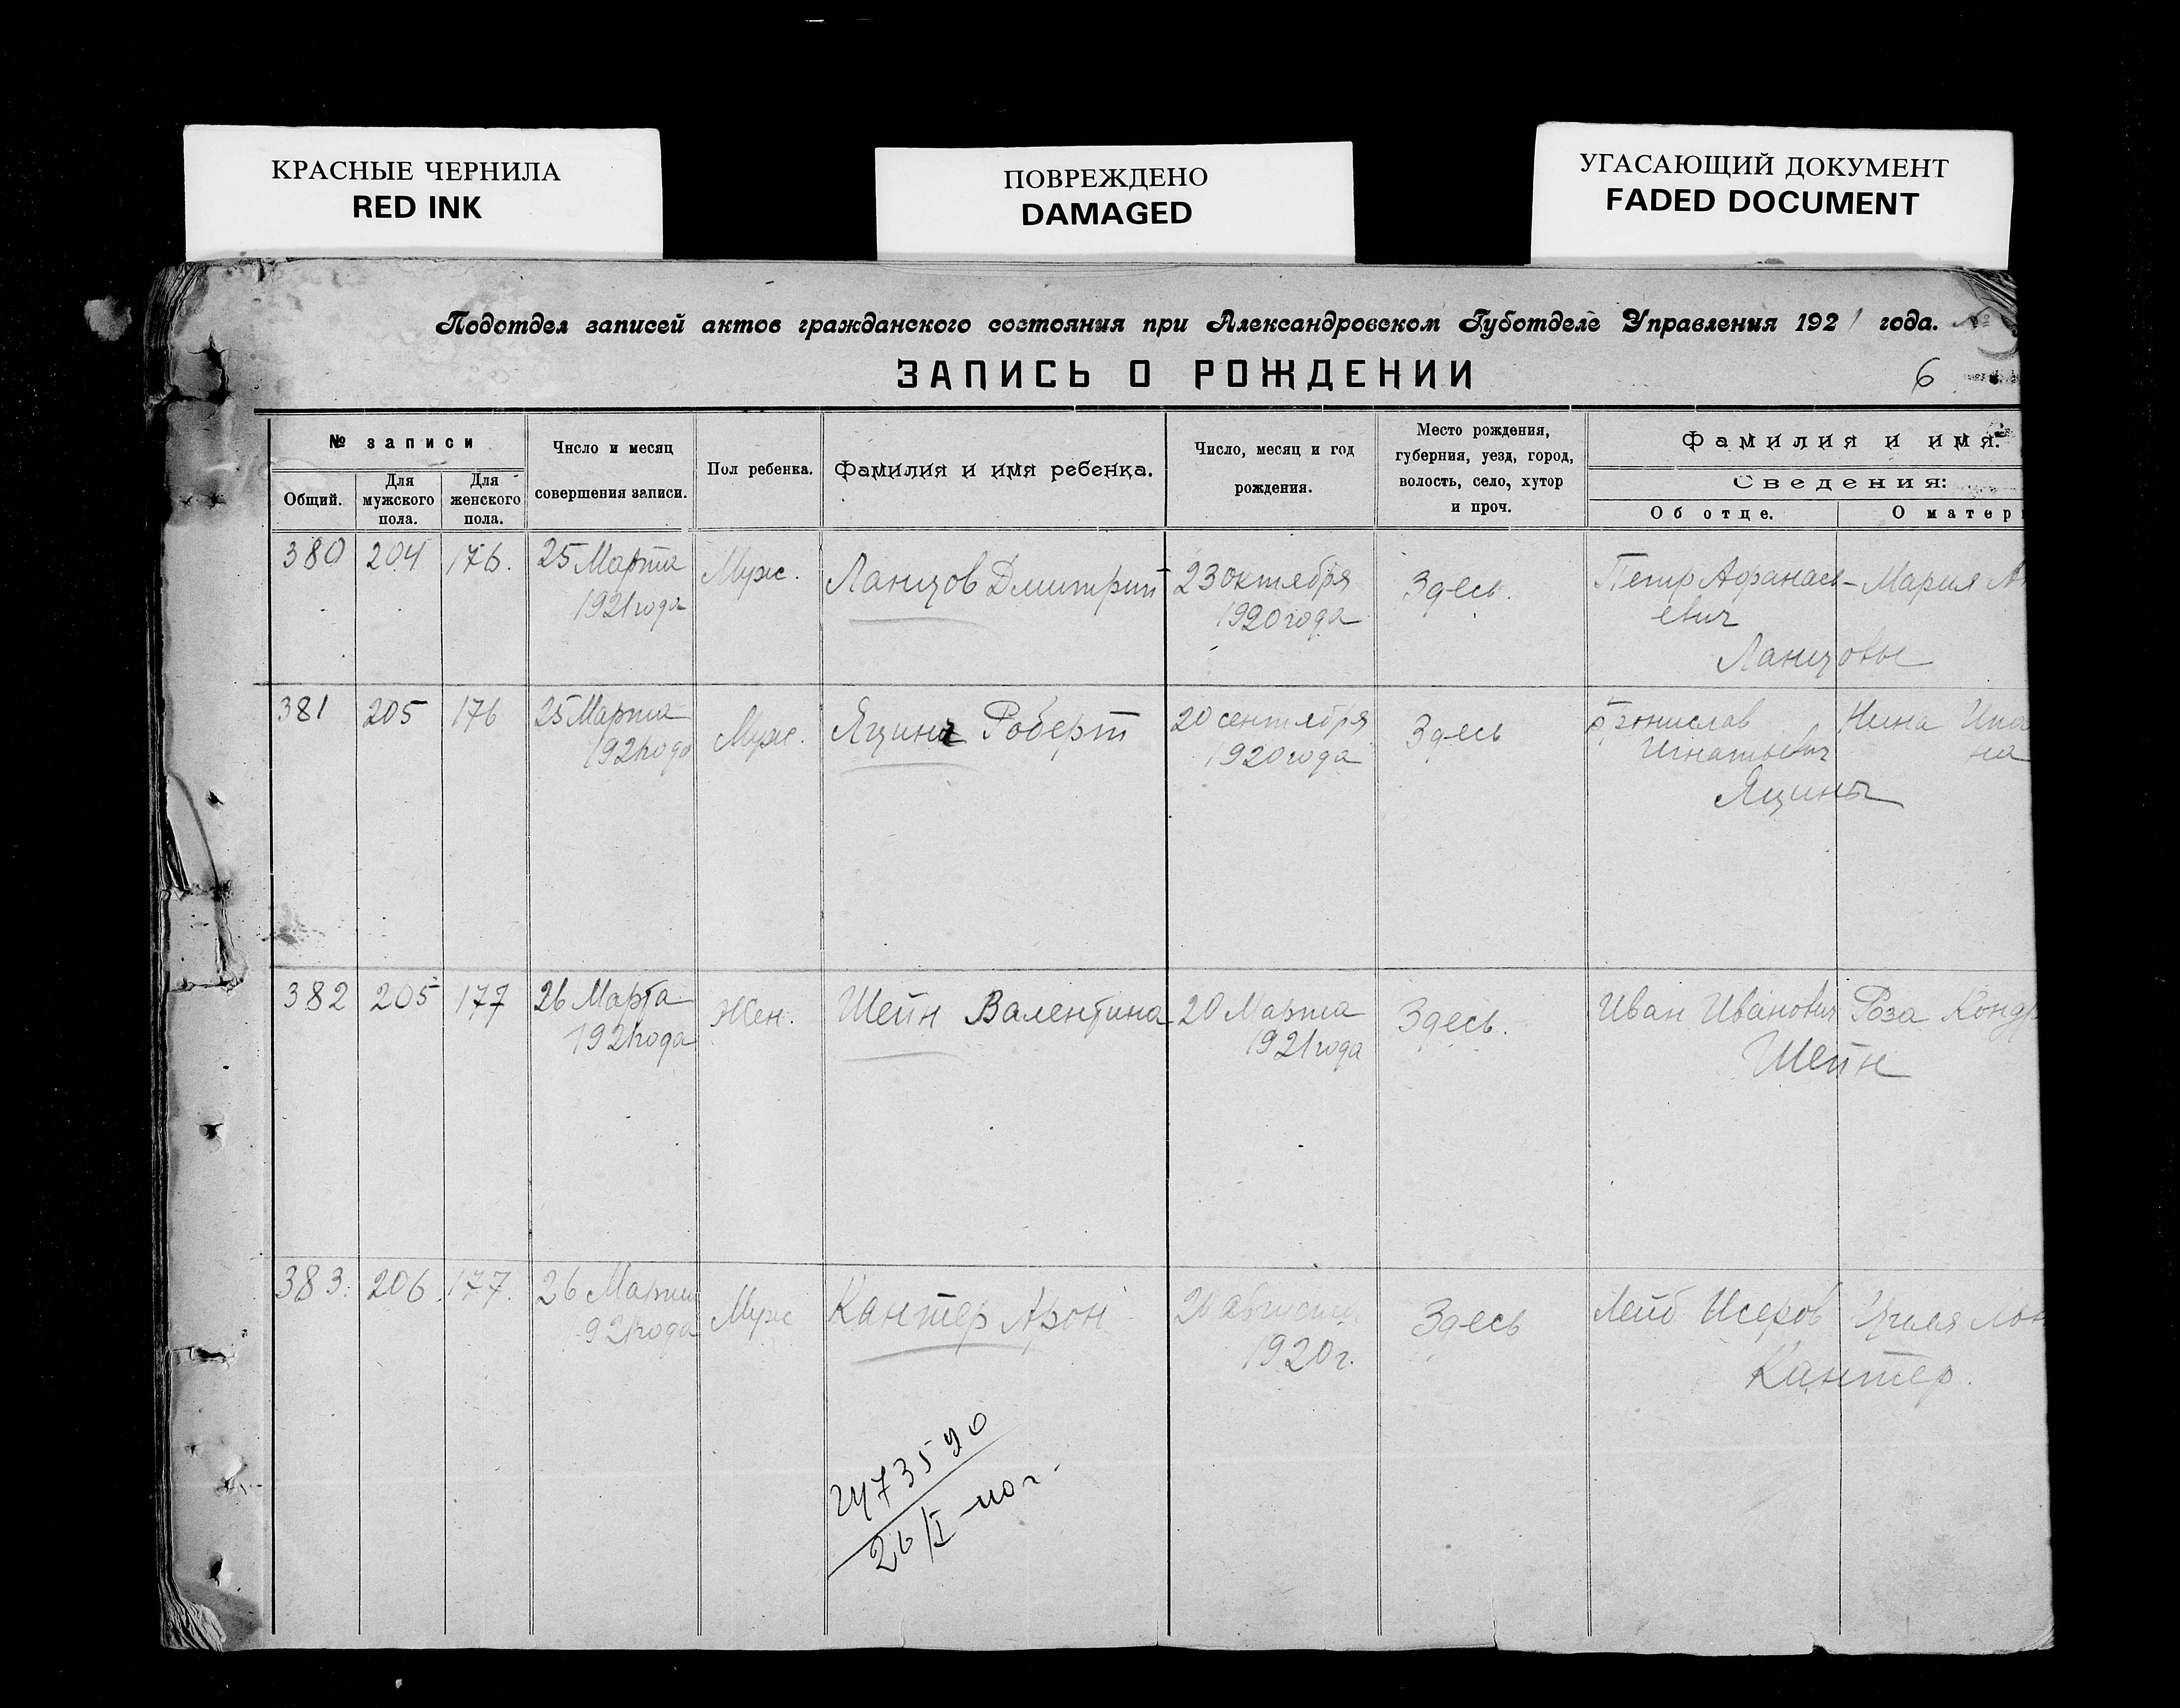 КРАСНЫЕ ЧЕРНИЛА
RED INK
ПОВРЕЖДЕНО
DAMAGED
УГАСАЮЩИЙ ДОКУМЕНТ
FADED DOCUMENT
Подотдел записей актов гражданского состояния при Александровском Губотделе Управления 1921 года. №
ЗАПИСЬ О РОЖДЕНИИ
6
№ записи
Общий.
Для мужского пола.
Для женского пола.
Число и месяц
совершения записи.
Пол ребенка.
Фамилия и имя ребенка.
Число, месяц и год
рождения.
Место рождения,
губерния, уезд, город,
волость, село, хутор
и проч.
Фамилия и имя.
Сведения:
Об отце.
О матери
380 204 176. 25 Марта Муж. Ланцов Дмитрий 23 октября Здесь. Петр Афанась- Мария
1921 года 1920 года евич
Ланцовы
381 205 176 25 Марта Муж. Яцина Роберт 20 сентября Здесь Бронислав Нина
1921 года 1920 года Игнатьевич на
Яцины
382 205 177 26 Марта Жен. Шейн Валентина 20 Марта Здесь. Иван Иванович Роза Кондр
1921 года 1921 года Шейн
383. 206 177. 26 Марта Муж Кантер Арон августа Здесь Лейб Исеров
1921 года 1920 г. Кантер.
2473590
26/I-40 г.